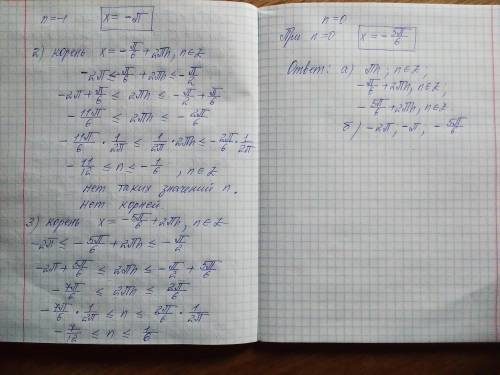 n=-1 x = -π
2) корень x = -π/6 + 2πn, n∈Z
-2π ≤ -π/6 + 2πn ≤ -π/2
-2π + π/6 ≤ 2πn ≤ -π/2 + π/6
-11π/6 ≤ 2πn ≤ -2π/6
-11π/6 · 1/2π ≤ 1/2π · 2πn ≤ -2π/6 · 1/2π
-11/12 ≤ n ≤ -1/6, n∈Z
нет таких значений n.
нет корней.
3) корень x = -5π/6 + 2πn, n∈Z
-2π ≤ -5π/6 + 2πn ≤ -π/2
-2π + 5π/6 ≤ 2πn ≤ -π/2 + 5π/6
-7π/6 ≤ 2πn ≤ 2π/6
-7π/6 · 1/2π ≤ n ≤ 2π/6 · 1/2π
-7/12 ≤ n ≤ 1/6
n=0
При n=0 x = -5π/6
Ответ: а) πn; n∈Z;
-π/6 + 2πn, n∈Z;
-5π/6 + 2πn, n∈Z
б) -2π, -π, -5π/6